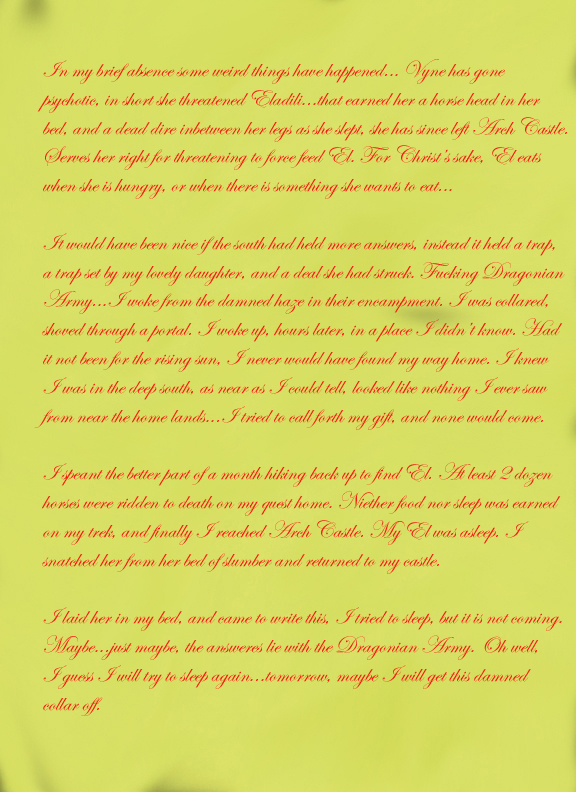 In my brief absence some weird things have happened... Vyne has gone
psychotic, in short she threatened Eladili...that earned her a horse head in her
bed, and a dead dire inbetween her legs as she slept, she has since left Arch Castle.
Serves her right for threatening to force feed El. For Christ's sake, El eats
when she is hungry, or when there is something she wants to eat...

It would have been nice if the south had held more answers, instead it held a trap,
a trap set by my lovely daughter, and a deal she had struck. Fucking Dragonian
Army...I woke from the damned haze in their encampment. I was collared,
shoved through a portal. I woke up, hours later, in a place I didn't know. Had
it not been for the rising sun, I never would have found my way home. I knew
I was in the deep south, as near as I could tell, looked like nothing I ever saw
from near the home lands...I tried to call forth my gift, and none would come.

I speant the better part of a month hiking back up to find El. At least 2 dozen
horses were ridden to death on my quest home. Niether food nor sleep was earned
on my trek, and finally I reached Arch Castle. My El was asleep. I
snatched her from her bed of slumber and returned to my castle.

I laid her in my bed, and came to write this, I tried to sleep, but it is not coming.
Maybe...just maybe, the answeres lie with the Dragonian Army. Oh well,
I guess I will try to sleep again...tomorrow, maybe I will get this damned
collar off.